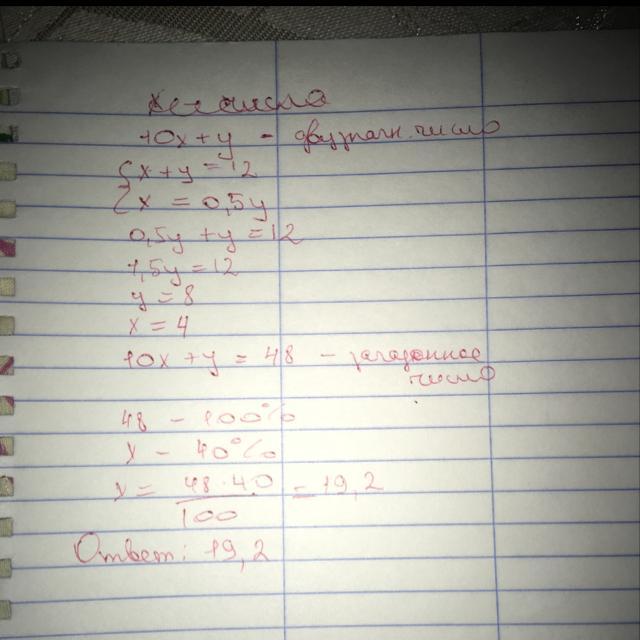 10x+y - двузначн. число
{ x + y = 12
x = 0,5y
0,5y + y = 12
1,5y = 12
y = 8
x = 4
10x + y = 48 - загаданное
число
48 - 100%
x - 40%
x = 48·40 / 100 = 19,2
Ответ: 19,2